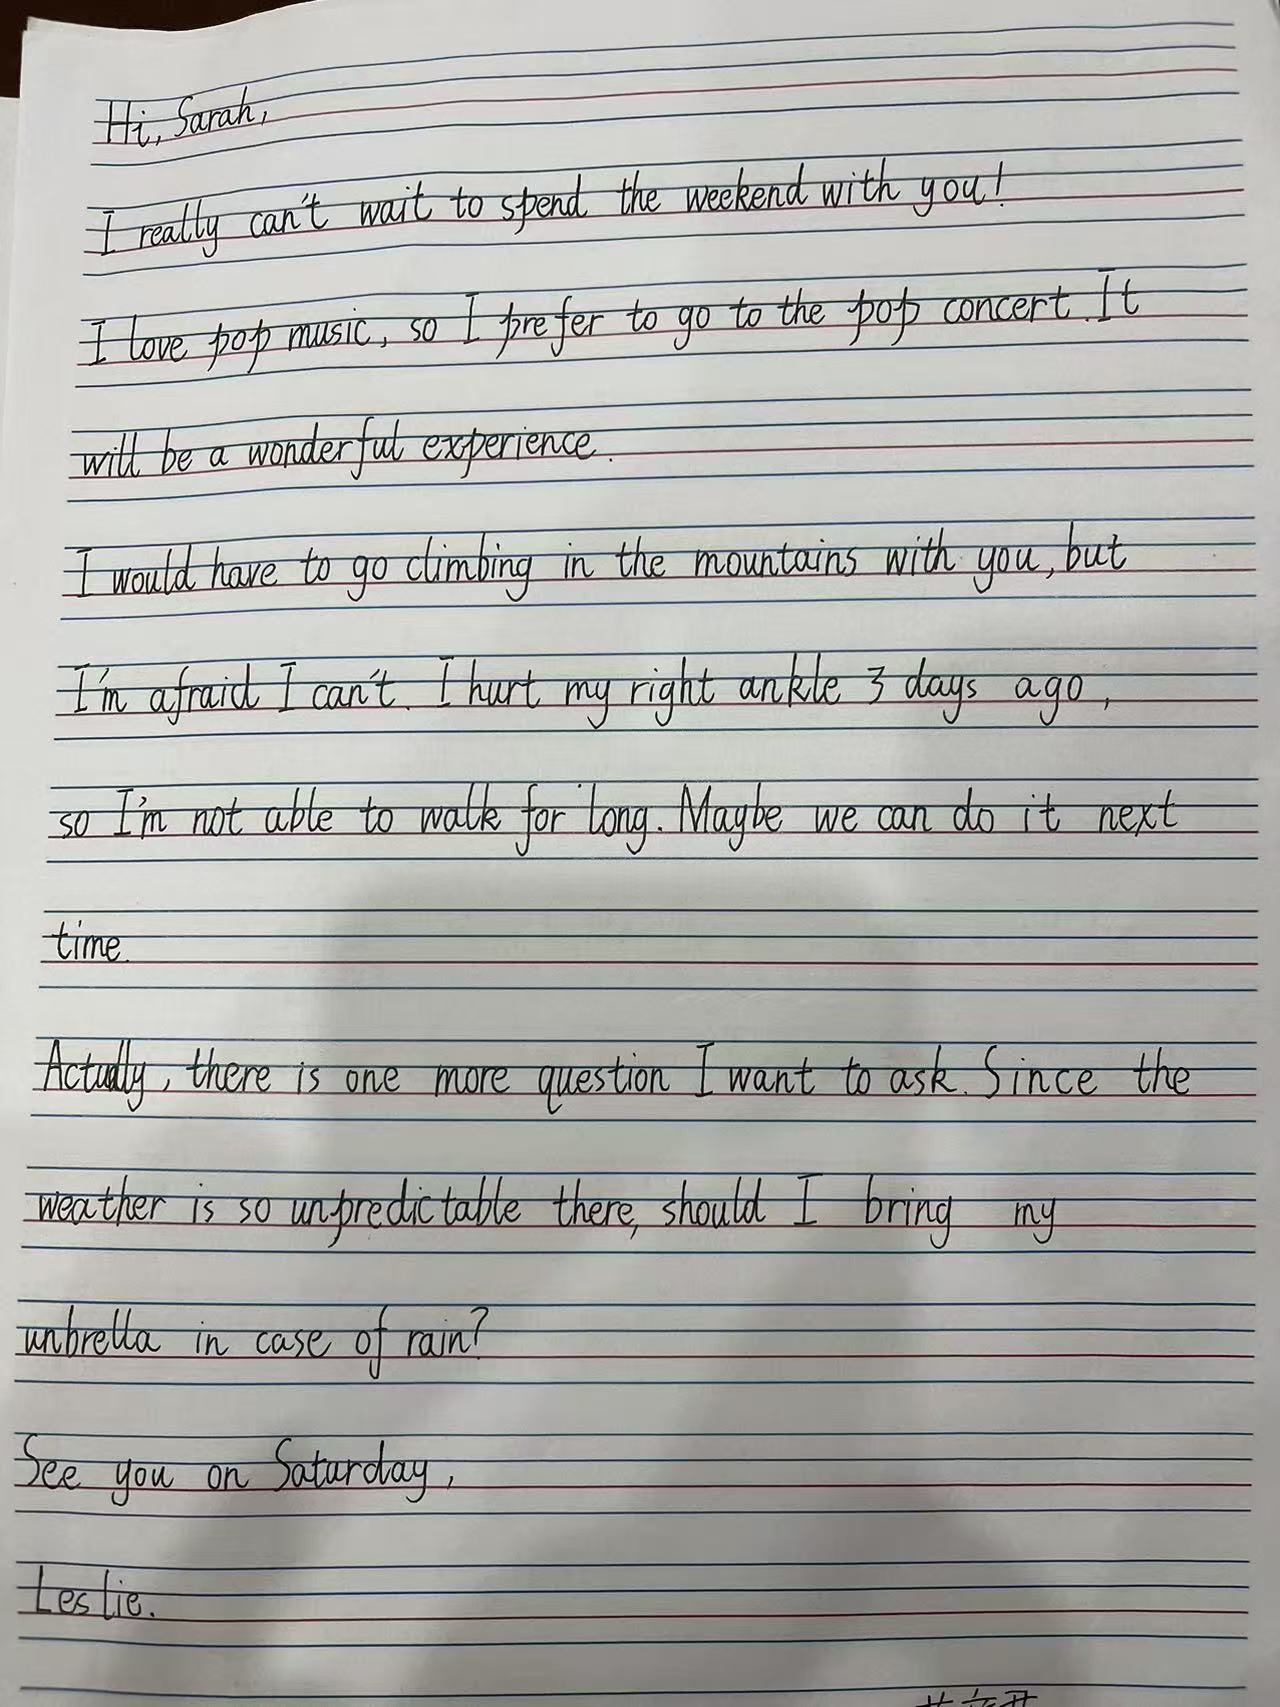 Hi, Sarah,
I really can't wait to spend the weekend with you!
I love pop music, so I prefer to go to the pop concert. It
will be a wonderful experience.
I would have to go climbing in the mountains with you, but
I'm afraid I can't. I hurt my right ankle 3 days ago,
so I'm not able to walk for long. Maybe we can do it next
time.
Actually, there is one more question I want to ask. Since the
weather is so unpredictable there, should I bring my
unbrella in case of rain?
See you on Saturday,
Leslie.